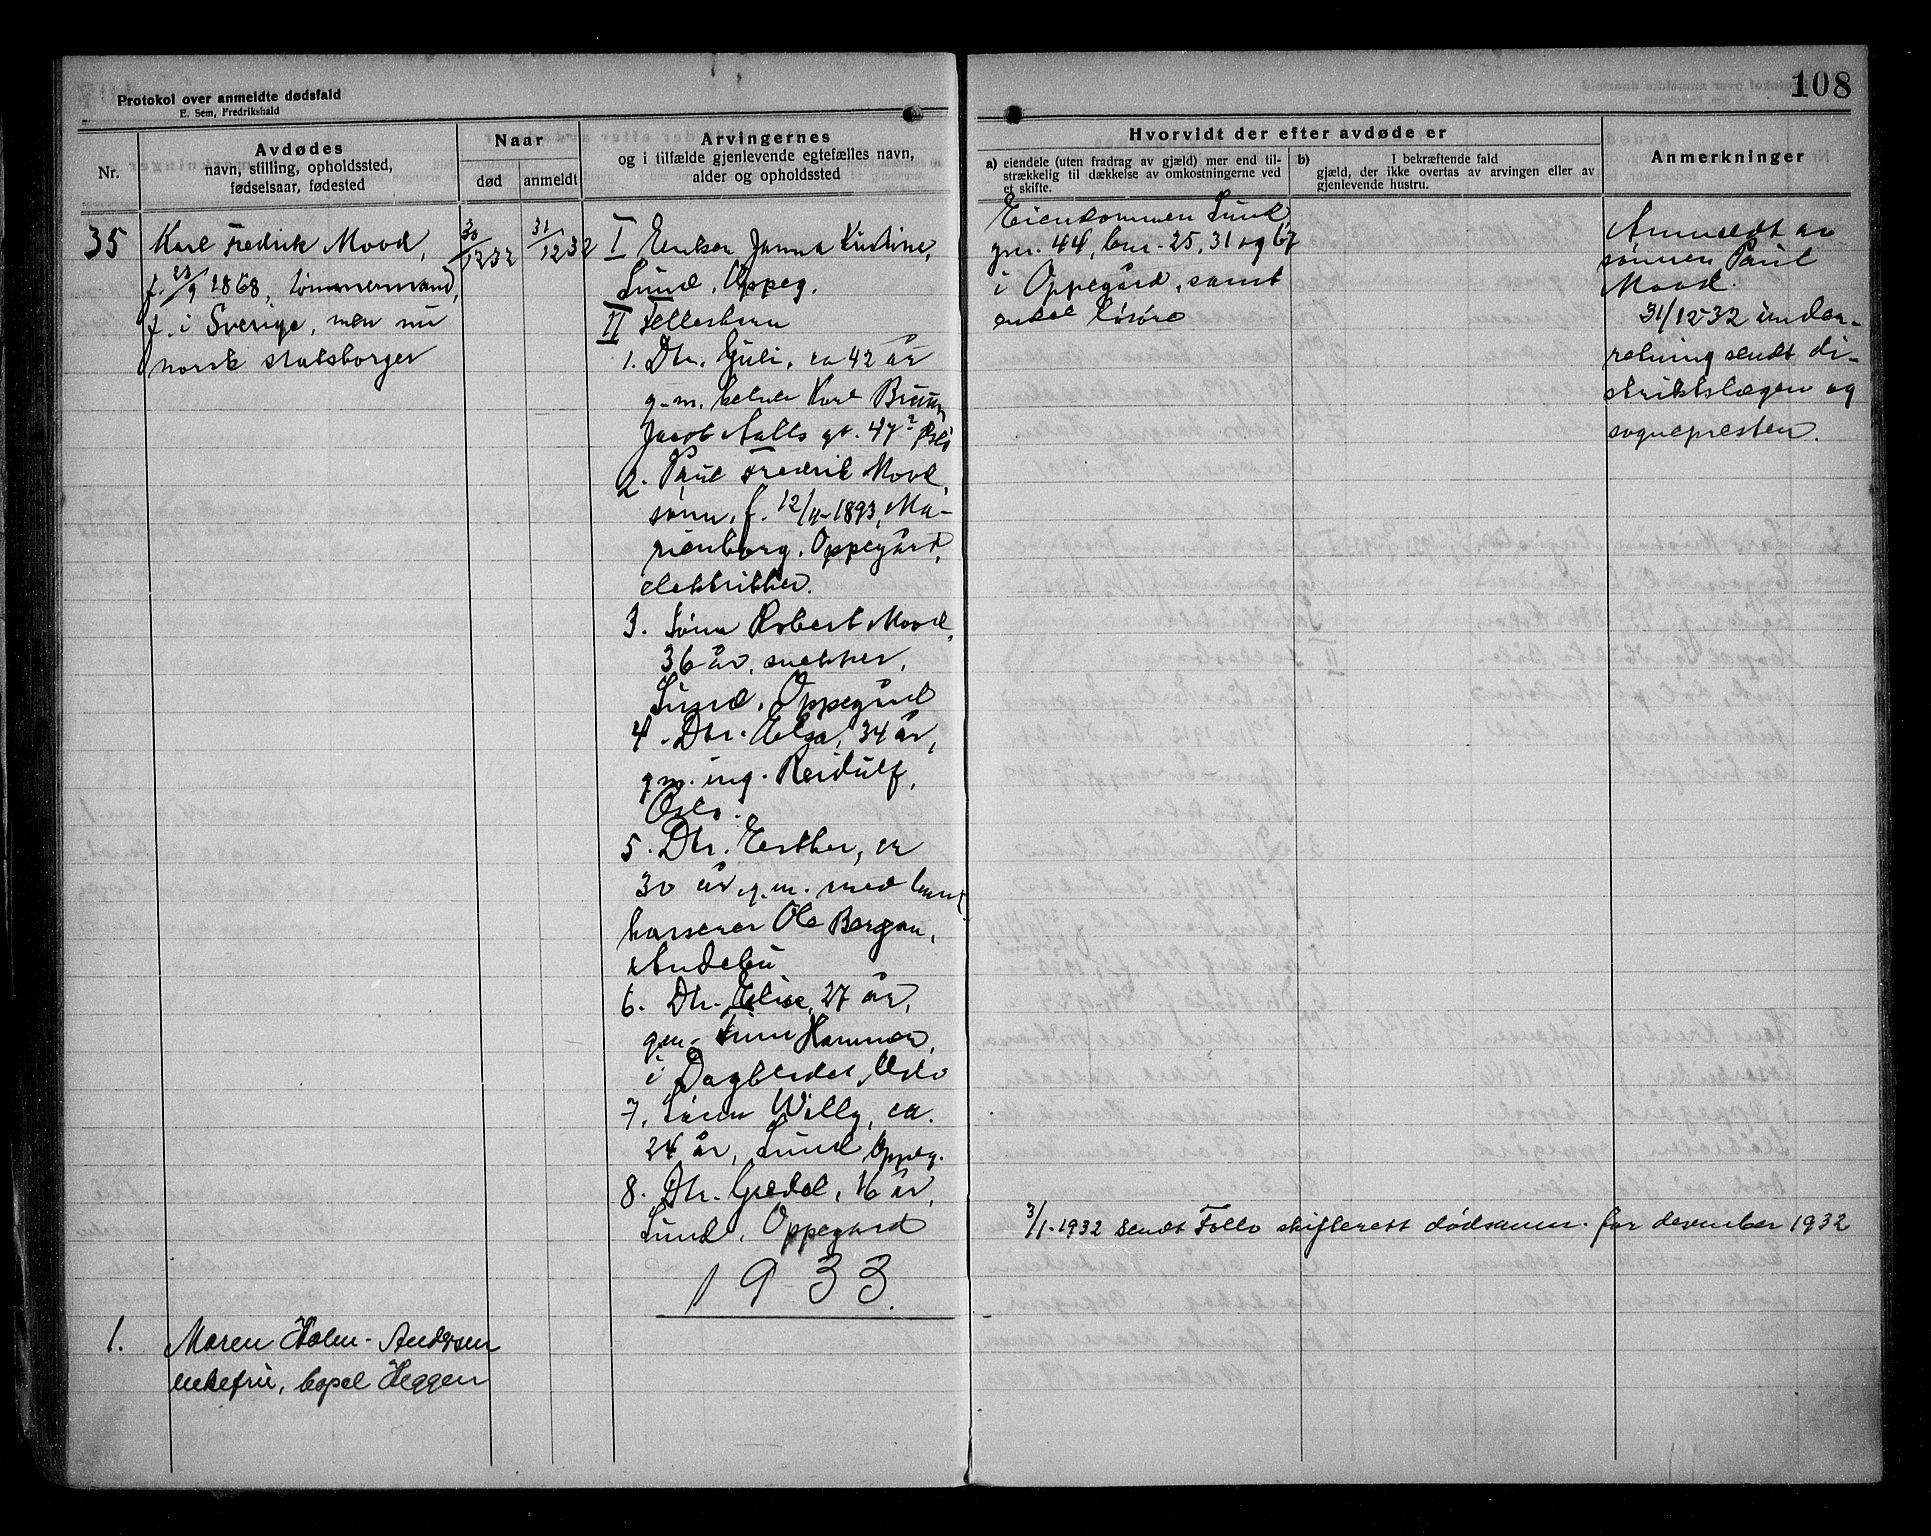 108
Protokol over anmeldte dødsfald
E. Sem, Fredrikshald
Nr.
Avdødes
navn, stilling, opholdssted,
fødselsaar, fødested
Naar
død
anmeldt
Arvingernes
og i tilfælde gjenlevende egtefælles navn,
alder og opholdssted
Hvorvidt der efter avdøde er
a) eiendele (uten fradrag av gjæld) mer end til-
strækkelig til dækkelse av omkostningerne ved
et skifte.
b) I bekræftende fald
gjæld, der ikke overtas av arvingen eller av
gjenlevende hustru.
Anmerkninger
35
Karl Fredrik Mood,
f. 23/9 1868, tømmermand,
f. i Sverige, men nu
norsk statsborger
30/12 32
31/12 32
I Enken Janna Kristine,
Lund, Oppeg.
II Fellesbarn
1. Dtr. Juli, ca 42 år
g.m. Karl Bruun
Jacob Aalls gt. 47 Oslo
2. Paul Fredrik Mood,
sønn, f. 12/4-1893, Ma-
rienborg, Oppegård,
elektriker.
3. Sønn Robert Mood,
36 år, snekker,
Lund, Oppegård
4. Dtr. Elsa, 34 år,
g.m. ing. Reidulf,
Oslo.
5. Dtr. Esther, ca
30 år g.m. med
kasserer Ole Bergan,
Andebu
6. Dtr. Elise, 27 år,
gm. Finn Hammer,
i Dagbladet, Oslo
7. Sønn Willy, ca.
24 år, Lund Oppeg.
8. Dtr. Gredel, 16 år,
Lund, Oppegård
Eiendommen Lund
gnr. 44, bnr. 25, 31 og 67
i Oppegård, samt
endel løsøre
Anmeldt av
sønnen Paul
Mood.
31/12-32 under-
retning sendt di-
striktslægen og
sognepresten.
3/1-1932 sendt Follo skifterett dødsanm. for desember 1932
1933
1.
Maren Holm-Andersen
enkefru, bopel Heggen